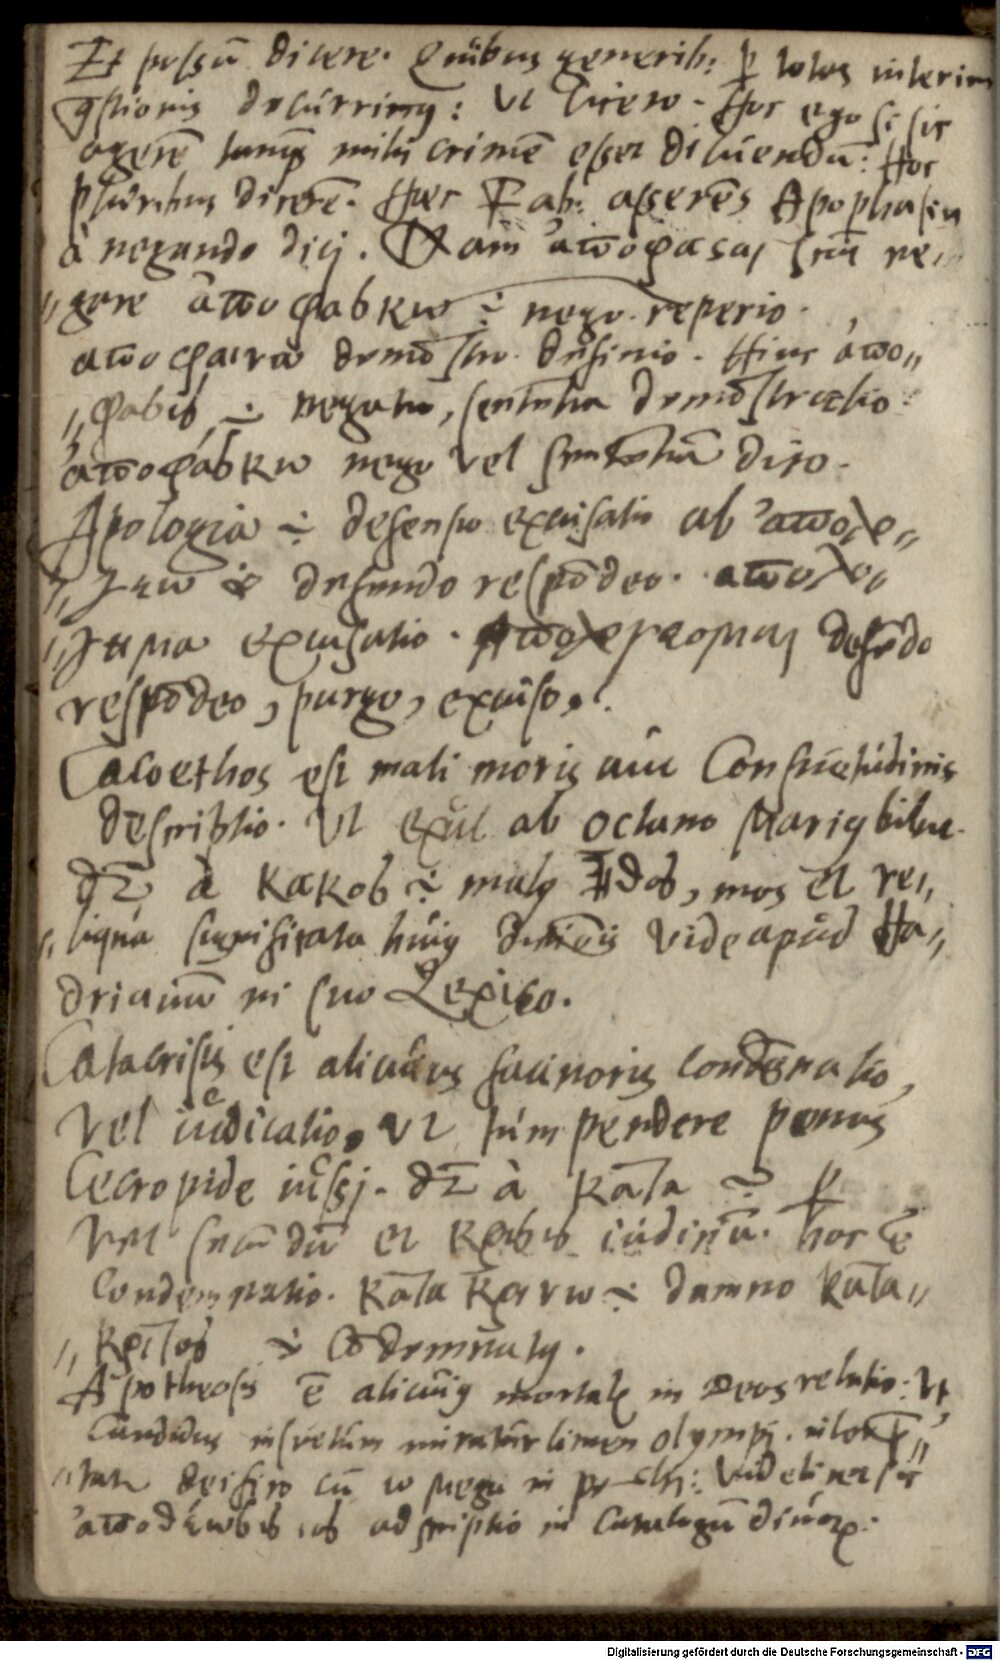 Et possū dicere. Quibus generib: p totos interim
qstionis decurrimꝯ: Ut Cicero. Hoc ego si sic
agerē tanq̄ mihi crimē esset diluendū: Hoc
pluribus dicerē. Haec Fab: asserēs Apophasin
à negando dici. Nam ἀποφασαι ne„
„gare ἀποφάσκω ÷ nego. reperio.
αποφαινω demōstro. definio. Hinc ἀπο„
„φασις ÷ negatio, sententia demōstratio:
ἀποφάσκω nego vel sententiā dico.
Apologia ÷ defensio excusatio ab ἀπολο„
„γεω defendo respōdeo. απολο„
„γημα excusatio. ἀπολογεομαι defēdo
respōdeo, purgo, excuso.
Cacoethos est mali moris aut Consuetudinis
descriptio. Ut exul ab octavo Mariꝯ bibit.
à κακος ÷ malꝯ ηθος, mos et re„
„liqua significata huiꝯ vide apud Ha„
drianum in suo Lexico.
Catacrisis est alicuius facinoris condēnatio,
vel iudicatio, ut tum pendere penas
Cecropide iussi. à κατα ÷ p
vel secundū et κρισις iudiciū. hoc ē
Condempnatio. κατακρινω ÷ damno κατα„
„κριτος ÷ Cōdemnatꝯ.
Apotheosis ē alicuiꝯ mortal in Deos relatio: Ut
Candidus insuetum miratur limen olympi.
deifico cū ω mega in Videlicet sic
ἀποθέωσις ιος adscriptio in Catalogū divorꝝ.
Digitalisierung gefördert durch die Deutsche Forschungsgemeinschaft - DFG